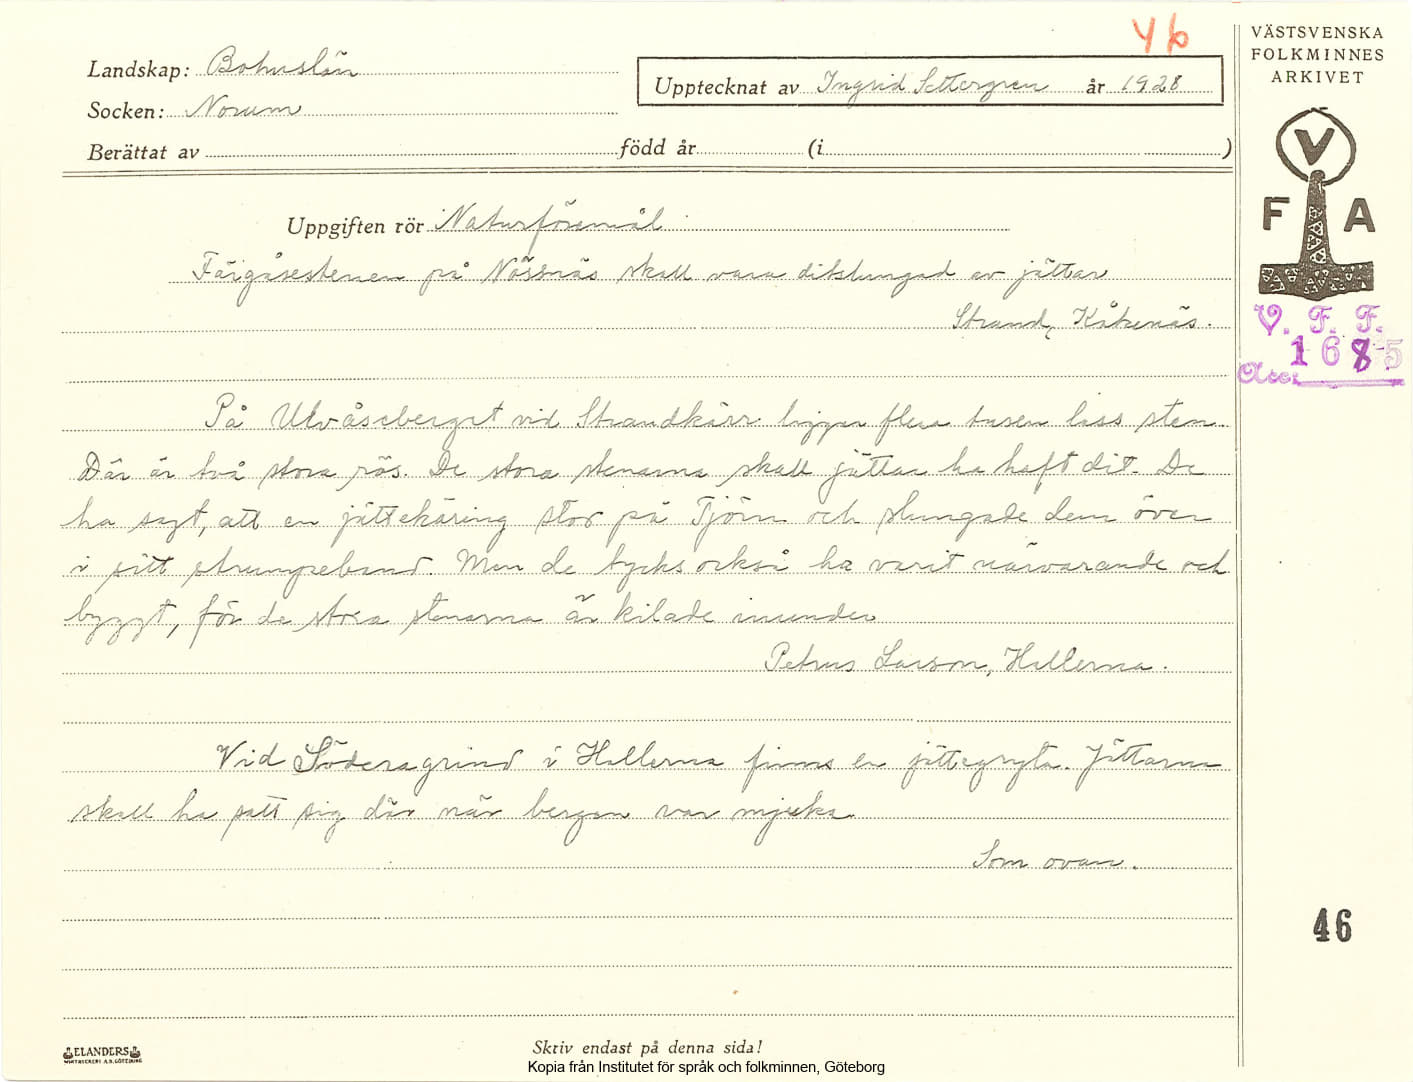 46
VÄSTSVENSKA
FOLKMINNES
ARKIVET
Landskap: Bohuslän
Upptecknat av Ingrid Settergren år 1928
Socken: Norum
Berättat av född år (i )
V
F A
Uppgiften rör Naturföremål
Färgåsestenen på Nössnäs skall vara ditslungad av jättar
Strand, Kåkenäs.
V. F. F.
1685
Acc:
På Ulvåseberget vid Strandkärr ligger flera tusen lass sten.
Där är två stora rös. De stora stenarna skall jättar ha haft dit. De
ha sagt, att en jättekäring stod på Tjörn och slungade dem över
i sitt strumpeband. Men de tycks också ha varit närvarande och
byggt, för de stora stenarna är kilade inunder
Petrus Larson, Hallerna.
Vid Söderagrind i Hallerna finns en jättegryta. Jättarna
skall ha satt sig där när bergen var mjuka.
Som ovan.
46
ELANDERS
Skriv endast på denna sida!
Kopia från Institutet för språk och folkminnen, Göteborg